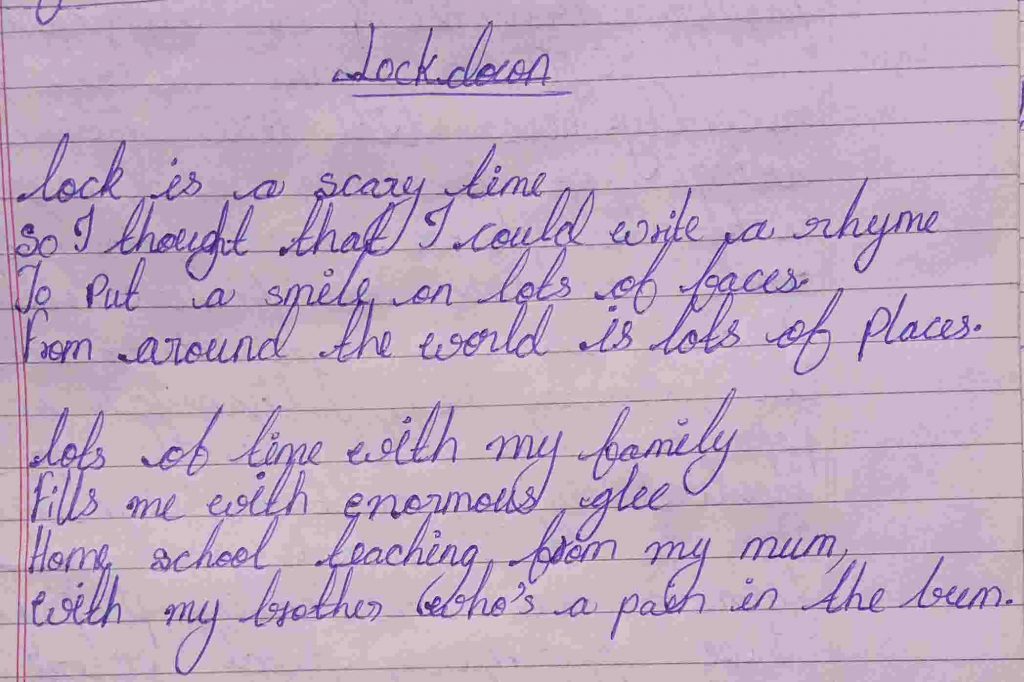 Lockdown
lock is a scary time
So I thought that I could write a rhyme
To Put a smile on lots of faces.
From around the world is lots of places.
lots of time with my family
Fills me with enormous glee
Home school teaching from my mum,
with my brother who's a pain in the bum.